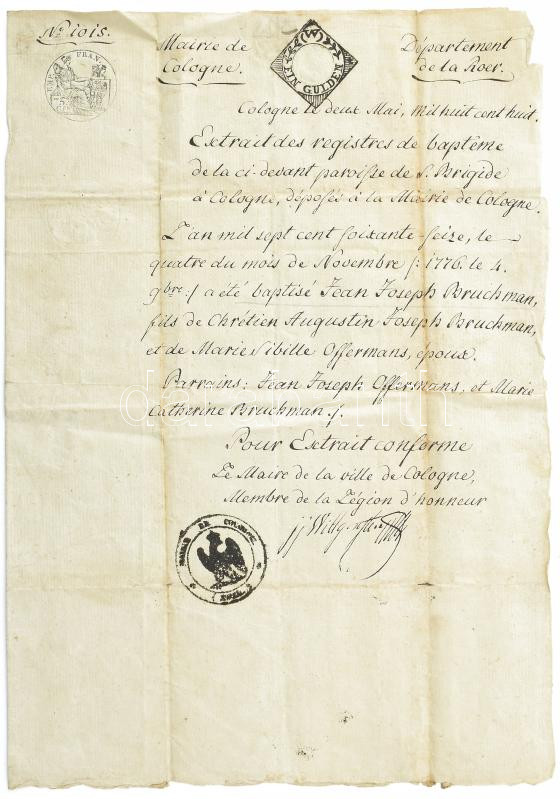 No 1015.
Mairie de
Cologne.
EIN GULDEN
W
Département
de la Roer.
EMP. FRAN.
Cologne le deux Mai, mil huit cent huit.
Extrait des registres de baptême
de la ci-devant paroisse de St. Brigide
à Cologne, déposés à la Mairie de Cologne.
L'an mil sept cent soixante-seize, le
quatre du mois de Novembre /: 1776. le 4.
9bre :/ a été baptisé Jean Joseph Bruchman,
fils de Chrétien Augustin Joseph Bruchman,
et de Marie Sibille Offermans, époux.
Parrains: Jean Joseph Offermans, et Marie
Catherine Bruchman ./.
Pour Extrait conforme
Le Maire de la ville de Cologne,
Membre de la Légion d'honneur
MAIRIE DE COLOGNE
ROER